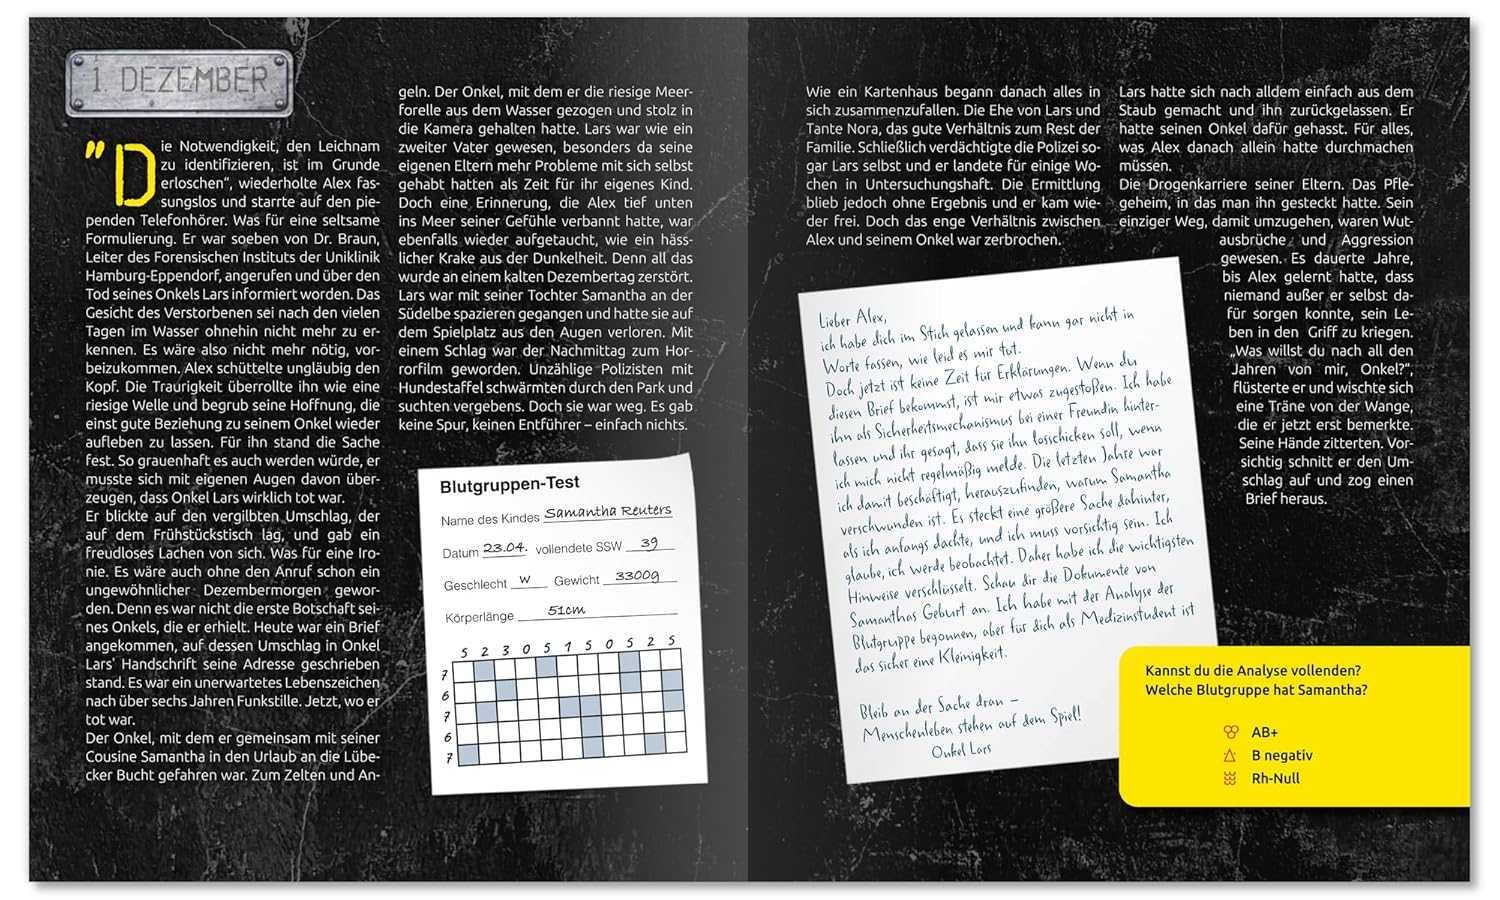 1. DEZEMBER
"Die Notwendigkeit, den Leichnam
zu identifizieren, ist im Grunde
erloschen“, wiederholte Alex fas-
sungslos und starrte auf den pie-
penden Telefonhörer. Was für eine seltsame
Formulierung. Er war soeben von Dr. Braun,
Leiter des Forensischen Instituts der Uniklinik
Hamburg-Eppendorf, angerufen und über den
Tod seines Onkels Lars informiert worden. Das
Gesicht des Verstorbenen sei nach den vielen
Tagen im Wasser ohnehin nicht mehr zu er-
kennen. Es wäre also nicht mehr nötig, vor-
beizukommen. Alex schüttelte ungläubig den
Kopf. Die Traurigkeit überrollte ihn wie eine
riesige Welle und begrub seine Hoffnung, die
einst gute Beziehung zu seinem Onkel wieder
aufleben zu lassen. Für ihn stand die Sache
fest. So grauenhaft es auch werden würde, er
musste sich mit eigenen Augen davon über-
zeugen, dass Onkel Lars wirklich tot war.
Er blickte auf den vergilbten Umschlag, der
auf dem Frühstückstisch lag, und gab ein
freudloses Lachen von sich. Was für eine Iro-
nie. Es wäre auch ohne den Anruf schon ein
ungewöhnlicher Dezembermorgen gewor-
den. Denn es war nicht die erste Botschaft sei-
nes Onkels, die er erhielt. Heute war ein Brief
angekommen, auf dessen Umschlag in Onkel
Lars’ Handschrift seine Adresse geschrieben
stand. Es war ein unerwartetes Lebenszeichen
nach über sechs Jahren Funkstille. Jetzt, wo er
tot war.
Der Onkel, mit dem er gemeinsam mit seiner
Cousine Samantha in den Urlaub an die Lübe-
cker Bucht gefahren war. Zum Zelten und An-
geln. Der Onkel, mit dem er die riesige Meer-
forelle aus dem Wasser gezogen und stolz in
die Kamera gehalten hatte. Lars war wie ein
zweiter Vater gewesen, besonders da seine
eigenen Eltern mehr Probleme mit sich selbst
gehabt hatten als Zeit für ihr eigenes Kind.
Doch eine Erinnerung, die Alex tief unten
ins Meer seiner Gefühle verbannt hatte, war
ebenfalls wieder aufgetaucht, wie ein häss-
licher Krake aus der Dunkelheit. Denn all das
wurde an einem kalten Dezembertag zerstört.
Lars war mit seiner Tochter Samantha an der
Südelbe spazieren gegangen und hatte sie auf
dem Spielplatz aus den Augen verloren. Mit
einem Schlag war der Nachmittag zum Hor-
rorfilm geworden. Unzählige Polizisten mit
Hundestaffel schwärmten durch den Park und
suchten vergebens. Doch sie war weg. Es gab
keine Spur, keinen Entführer – einfach nichts.
Blutgruppen-Test
Name des Kindes Samantha Reuters
Datum 23.04. vollendete SSW 39
Geschlecht w Gewicht 3300g
Körperlänge 51cm
5 2 3 0 5 1 5 0 5 2 5
7
6
7
6
7
Wie ein Kartenhaus begann danach alles in
sich zusammenzufallen. Die Ehe von Lars und
Tante Nora, das gute Verhältnis zum Rest der
Familie. Schließlich verdächtigte die Polizei so-
gar Lars selbst und er landete für einige Wo-
chen in Untersuchungshaft. Die Ermittlung
blieb jedoch ohne Ergebnis und er kam wie-
der frei. Doch das enge Verhältnis zwischen
Alex und seinem Onkel war zerbrochen.
Lieber Alex,
ich habe dich im Stich gelassen und kann gar nicht in
Worte fassen, wie leid es mir tut.
Doch jetzt ist keine Zeit für Erklärungen. Wenn du
diesen Brief bekommst, ist mir etwas zugestoßen. Ich habe
ihn als Sicherheitsmechanismus bei einer Freundin hinter-
lassen und ihr gesagt, dass sie ihn losschicken soll, wenn
ich mich nicht regelmäßig melde. Die letzten Jahre war
ich damit beschäftigt, herauszufinden, warum Samantha
verschwunden ist. Es steckt eine größere Sache dahinter,
als ich anfangs dachte, und ich muss vorsichtig sein. Ich
glaube, ich werde beobachtet. Daher habe ich die wichtigsten
Hinweise verschlüsselt. Schau dir die Dokumente von
Samanthas Geburt an. Ich habe mit der Analyse der
Blutgruppe begonnen, aber für dich als Medizinstudent ist
das sicher eine Kleinigkeit.
Bleib an der Sache dran –
Menschenleben stehen auf dem Spiel!
Onkel Lars
Lars hatte sich nach alldem einfach aus dem
Staub gemacht und ihn zurückgelassen. Er
hatte seinen Onkel dafür gehasst. Für alles,
was Alex danach allein hatte durchmachen
müssen.
Die Drogenkarriere seiner Eltern. Das Pfle-
geheim, in das man ihn gesteckt hatte. Sein
einziger Weg, damit umzugehen, waren Wut-
ausbrüche und Aggression
gewesen. Es dauerte Jahre,
bis Alex gelernt hatte, dass
niemand außer er selbst da-
für sorgen konnte, sein Le-
ben in den Griff zu kriegen.
„Was willst du nach all den
Jahren von mir, Onkel?“,
flüsterte er und wischte sich
eine Träne von der Wange,
die er jetzt erst bemerkte.
Seine Hände zitterten. Vor-
sichtig schnitt er den Um-
schlag auf und zog einen
Brief heraus.
Kannst du die Analyse vollenden?
Welche Blutgruppe hat Samantha?
AB+
B negativ
Rh-Null